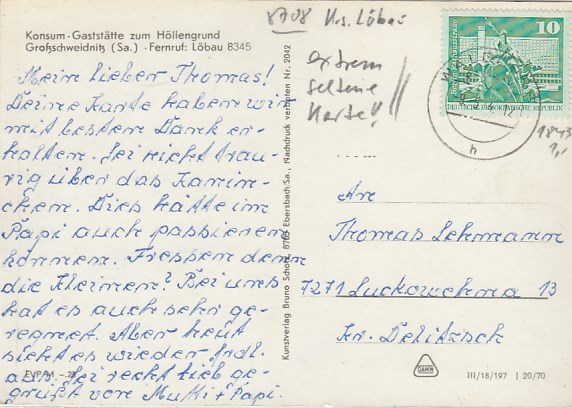 Konsum-Gaststätte zum Höllengrund
Großschweidnitz (Sa.) · Fernruf: Löbau 8345
Mein lieber Thomas!
Deine Karte haben wir
mit bestem Dank er-
halten. Sei nicht trau-
rig über das Kanin-
chen. Dies hätte im
Papi auch passieren
können. Fressen denn
die Kleinen? Bei uns
hat es auch sehr ge-
regnet. Aber heut
sieht es wieder frdl.
aus. Sei recht lieb ge-
grüßt von Mutti + Papi.
EVP M -.20
Kunstverlag Bruno Scholz, 8705 Ebersbach/Sa., Nachdruck verboten Nr. 2042
8708 Krs. Löbau
extrem
seltene
Karte!!
10
DEUTSCHE DEMOKRATISCHE REPUBLIK
h
1843
An
Thomas Lehmann
7271 Luckowehna 13
Kr. Delitzsch
III/18/197 | 20/70